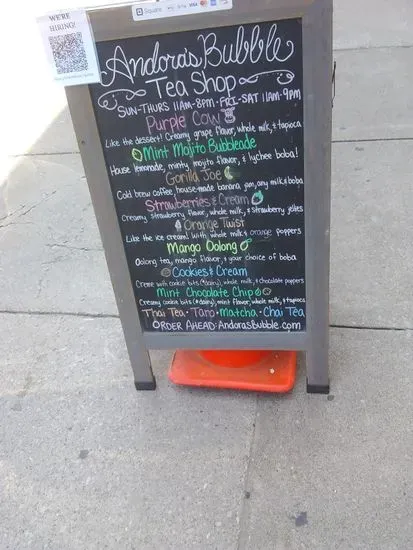 WE'RE
HIRING!
Square
VISA
Andora's Bubble
Tea Shop
SUN-THURS 11AM-8PM·FRI-SAT 11AM-9PM
Purple Cow
Like the dessert! Creamy grape flavor, whole milk, & tapioca
Mint Mojito Bubbleade
House lemonade, minty mojito flavor, & lychee boba!
Gorilla Joe
Cold brew coffee, house-made banana jam, any milk & boba
Strawberries & Cream
Creamy, strawberry flavor, whole milk, & strawberry jellies
Orange Twist
Like the ice cream! with whole milk & orange poppers
Mango Oolong
Oolong tea, mango flavor, & your choice of boba
Cookies & Cream
Creme with cookie bits (*dairy), whole milk, & chocolate poppers
Mint Chocolate Chip
Creamy cookie bits (*dairy), mint flavor, whole milk, & tapioca
Thai Tea · Taro · Matcha · Chai Tea
ORDER AHEAD: AndorasBubble.com